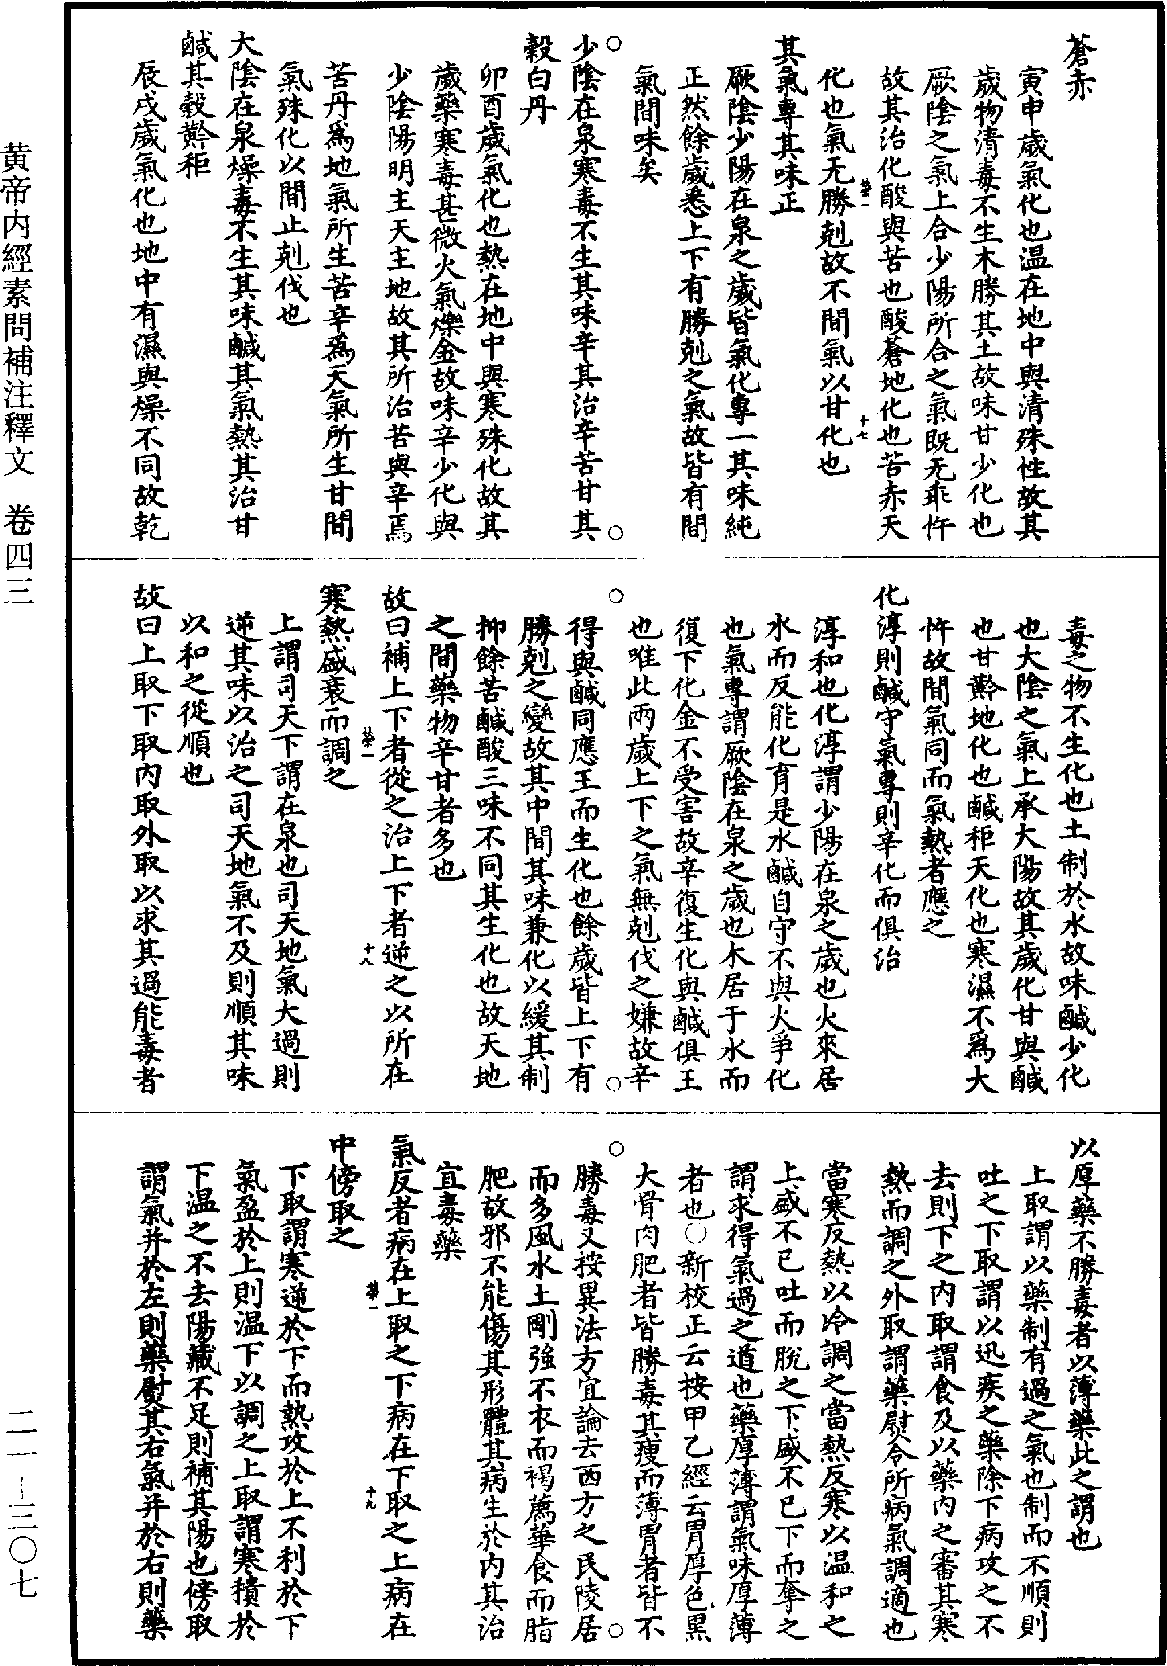 蒼赤
寅申歲氣化也温在地中與清殊性故其
歲物清毒不生木勝其土故味甘少化也
厥陰之氣上合少陽所合之氣既无乖忤
故其治化酸與苦也酸蒼地化也苦赤天
化也氣无勝剋故不間氣以甘化也
其氣專其味正
厥陰少陽在泉之歲皆氣化專一其味純
正然餘歲悉上下有勝剋之氣故皆有間
氣間味矣
少陰在泉寒毒不生其味辛其治辛苦甘其
穀白丹
卯酉歲氣化也熱在地中與寒殊化故其
歲藥寒毒甚微火氣爍金故味辛少化與
少陰陽明主天主地故其所治苦與辛焉
苦丹爲地氣所生苦辛爲天氣所生甘間
氣殊化以間止剋伐也
大陰在泉燥毒不生其味鹹其氣熱其治甘
鹹其穀黅秬
辰戌歲氣化也地中有濕與燥不同故乾
十七
毒之物不生化也土制於水故味鹹少化
也大陰之氣上承大陽故其歲化甘與鹹
也甘黅地化也鹹秬天化也寒濕不爲大
忤故間氣同而氣熱者應之
化淳則鹹守氣專則辛化而俱治
淳和也化淳謂少陽在泉之歲也火來居
水而反能化育是水鹹自守不與火爭化
也氣專謂厥陰在泉之歲也木居于水而
復下化金不受害故辛復生化與鹹俱王
也唯此兩歲上下之氣無剋伐之嫌故辛
得與鹹同應王而生化也餘歲皆上下有
勝剋之變故其中間其味兼化以緩其制
抑餘苦鹹酸三味不同其生化也故天地
之間藥物辛甘者多也
故曰補上下者從之治上下者逆之以所在
寒熱盛衰而調之
上謂司天下謂在泉也司天地氣大過則
逆其味以治之司天地氣不及則順其味
以和之從順也
故曰上取下取內取外取以求其過能毒者
十八
以厚藥不勝毒者以薄藥此之謂也
上取謂以藥制有過之氣也制而不順則
吐之下取謂以迅疾之藥除下病攻之不
去則下之內取謂食及以藥內之審其寒
熱而調之外取謂藥熨令所病氣調適也
當寒反熱以冷調之當熱反寒以温和之
上盛不已吐而脫之下盛不已下而奪之
謂求得氣過之道也藥厚薄謂氣味厚薄
者也○新校正云按甲乙經云胃厚色黑
大骨肉肥者皆勝毒其瘦而薄胃者皆不
勝毒又按異法方宜論云西方之民陵居
而多風水土剛強不衣而褐薦華食而脂
肥故邪不能傷其形體其病生於內其治
宜毒藥
氣反者病在上取之下病在下取之上病在
中傍取之
下取謂寒逆於下而熱攻於上不利於下
氣盈於上則温下以調之上取謂寒積於
下温之不去陽藏不足則補其陽也傍取
謂氣并於左則藥熨其右氣并於右則藥
十九
黄帝内經素問補注釋文　卷四三
二一—二〇七